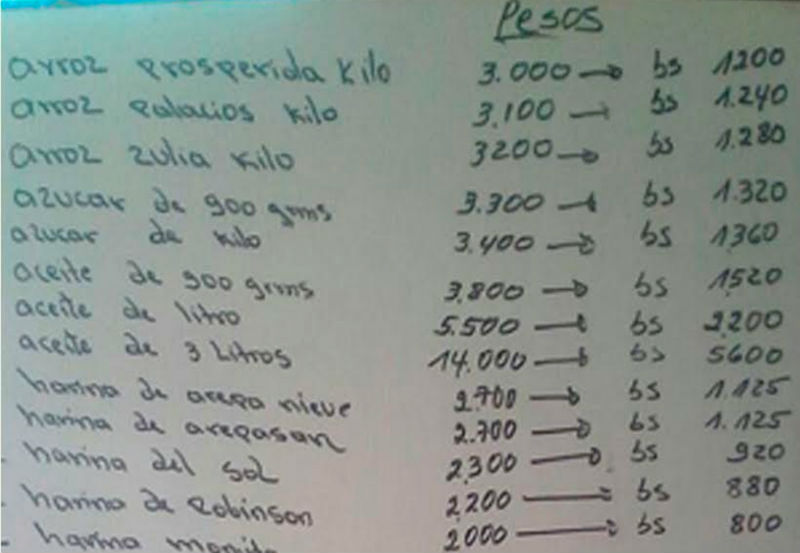 Pesos
arroz prosperida kilo 3.000 → bs 1200
arroz palacios kilo 3.100 → bs 1.240
arroz zulia kilo 3200 → bs 1.280
azucar de 900 grms 3.300 → bs 1.320
azucar de kilo 3.400 → bs 1360
aceite de 900 grms 3.800 → bs 1520
aceite de litro 5.500 → bs 2200
aceite de 3 Litros 14.000 → bs 5600
harina de arepa nieve 2.700 → bs 1.125
harina de arepasan 2.700 → bs 1.125
- harina del sol 2.300 → bs 920
- harina de Robinson 2.200 → bs 880
- harina 2000 → bs 800